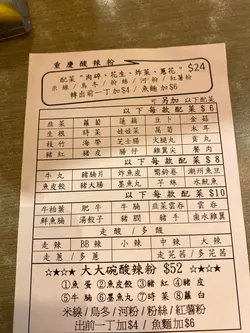 重慶酸辣粉
配菜"肉碎、花生、炸菜、蔥花" $24
米線/烏冬/粉絲/河粉/紅薯粉
轉出前一丁加$4/魚麵加$6
可另加以下配菜
以下每款配菜$6
韭菜 蘿蔔 蓮藕 豆卜 金菇
生根 時菜 娃娃菜 萬苟 木耳
枝竹 海帶 芝士腸 墨丸 魚旦
豬紅 豬皮 腸仔 雞翼尖 蟹肉
以下每款配菜$8
牛丸 豬腩片 炸魚皮 潮州魚旦
魚皮餃 豬大腸 墨魚丸 芋絲 水魷魚
以下每款配菜$10
牛柏葉 肥牛 牛腩 韭菜雲吞 雲吞
鮮魚腩 湯餃子 豬膶 豬手 南水雞翼
走酸/多酸
走辣 BB辣 小辣 中辣 大辣
走蔥/多蔥 走芫茜/多芫茜
☆★☆★大大碗酸辣粉 $52 ☆★☆★
①魚蛋 ②魚皮餃 ③豬紅 ④豬皮
⑤牛腩 ⑥墨魚丸 ⑦時菜 ⑧蘿白
米線/烏冬/河粉/粉絲/紅薯粉
出前一丁加$4/魚麵加$6